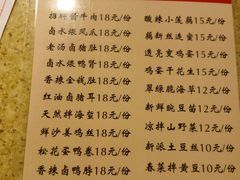 招牌酱牛肉18元/份
卤水煨凤爪18元/份
老汤卤猪肚18元/份
卤水煨鸭肾18元/份
香辣金钱肚18元/份
红油卤猪耳18元/份
天然拌海蜇18元/份
鲜沙姜鸡丝18元/份
松花蛋鸭卷18元/份
香辣卤鸭脖18元/份
酸辣小莲藕15元/份
翡新丝莲蜜15元/份
透亮熏鸡蛋15元/份
鸡蛋干花生15元/份
翠绿脆海草12元/份
新鲜豌豆苗12元/份
凉拌山野菜12元/份
新派土豆丝10元/份
春菜拌黄豆10元/份